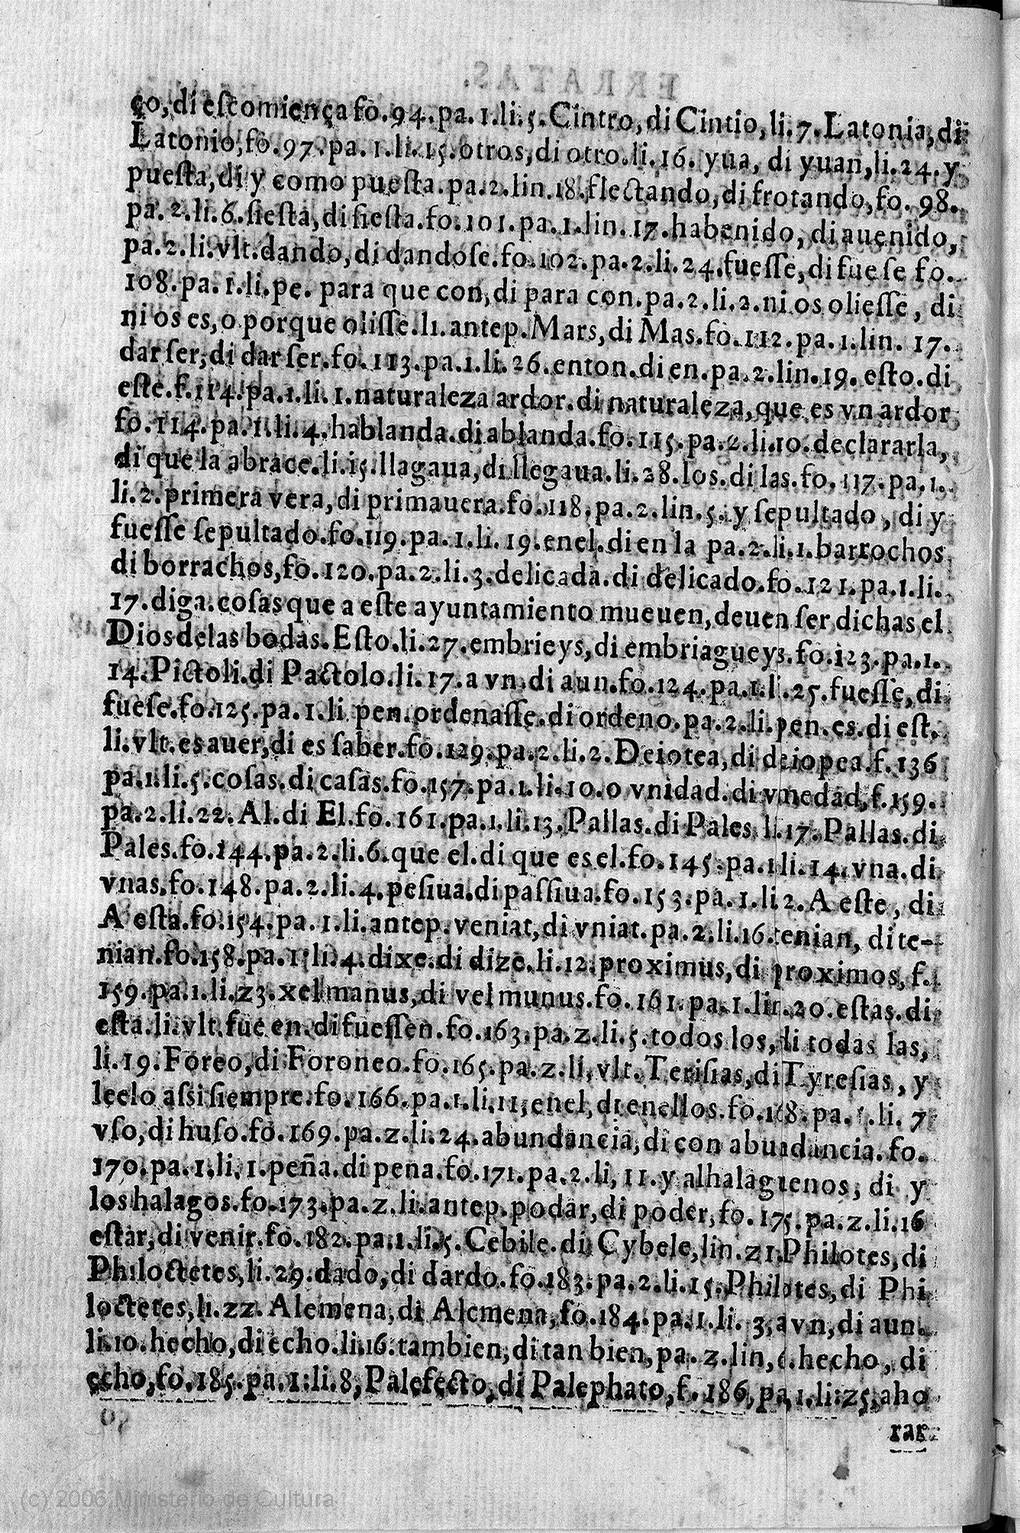 ço, di escomiença fo. 94. pa. 1. li. 5. Cintro, di Cintio, li. 7. Latonia, di
Latonio, fo. 97. pa. 1. li. 15. otros, di otro. li. 16. yua, di yuan, li. 24. y
puesta, di y como puesta. pa. 2. lin. 18. flectando, di frotando, fo. 98.
pa. 2. li. 6. siesta, di fiesta. fo. 101. pa. 1. lin. 17. habenido, di auenido,
pa. 2. li. vlt. dando, di dandose. fo. 102. pa. 2. li. 24. fuesse, di fuese fo.
108. pa. 1. li. pe. para que con, di para con. pa. 2. li. 2. ni os oliesse, di
ni os es, o porque olisse. li. antep. Mars, di Mas. fo. 112. pa. 1. lin. 17.
dar ser, di dar ser. fo. 113. pa. 1. li. 26. enton. di en. pa. 2. lin. 19. esto. di
este. f. 114. pa. 1. li. 1. naturaleza ardor. di naturaleza, que es vn ardor
fo. 114. pa. 1. li. 4. hablanda. di ablanda. fo. 115. pa. 2. li. 10. declararla,
di que la abrace. li. 15. llagaua, di llegaua. li. 28. los. di las. fo. 117. pa. 1.
li. 2. primera vera, di primauera. fo. 118. pa. 2. lin. 5. y sepultado, di y
fuesse sepultado. fo. 119. pa. 1. li. 19. enel. di en la pa. 2. li. 1. barrochos
di borrachos, fo. 120. pa. 2. li. 3. delicada. di delicado. fo. 121. pa. 1. li.
17. diga. cosas que a este ayuntamiento mueuen, deuen ser dichas el
Dios de las bodas. Esto. li. 27. embrieys, di embriagueys. fo. 123. pa. 1.
14. Pictoli. di Pactolo. li. 17. a vn. di aun. fo. 124. pa. 1. li. 25. fuesse, di
fuese. fo. 125. pa. 1. li. pen. ordenasse. di ordeno. pa. 2. li. pen. es. di est.
li. vlt. es auer, di es saber. fo. 129. pa. 2. li. 2. Deiotea, di deiopea. f. 136
pa. 1. li. 5. cosas. di casas. fo. 157. pa. 1. li. 10. o vnidad. di vmedad, f. 159.
pa. 2. li. 22. Al. di El. fo. 161. pa. 1. li. 13. Pallas. di Pales li. 17. Pallas. di
Pales. fo. 144. pa. 2. li. 6. que el. di que es el. fo. 145. pa. 1 li. 14. vna. di
vnas. fo. 148. pa. 2. li. 4. pesiua. di passiua. fo. 153. pa. 1. li 2. A este, di
A esta. fo. 154. pa. 1. li. antep. veniat, di vniat. pa. 2. li. 16. tenian, di te-
nian. fo. 158. pa. 1. li. 4. dixe. di dize. li. 12. proximus, di proximos, f.
159. pa. 1. li. 23. xel manus, di vel munus. fo. 161. pa. 1. lin. 20. estas. di
esta. li. vlt. fue en. di fuessen. fo. 163. pa. 2. li. 5. todos los, di todas las,
li. 19. Foreo, di Foroneo. fo. 165. pa. 2. li, vlt. Terisias, di Tyresias, y
leelo assi siempre. fo. 166. pa. 1. li. 11, enel, di enellos. fo. 168. pa. 1. li. 7
vso, di huso. fo. 169. pa. 2. li. 24. abundancia, di con abundancia. fo.
170. pa. 1. li. 1. peña. di pena. fo. 171. pa. 2. li, 11. y alhalaguenos, di y
los halagos. fo. 173. pa. 2. li. antep. podar, di poder, fo. 175. pa. 2. li. 16
estar, di venir. fo. 182. pa. 1. li. 5. Cebile. di Cybele, lin. 21. Philotes, di
Philoctetes, li. 29. dado, di dardo. fo. 183. pa. 2. li. 15. Philotes, di Phi
loctetes, li. 22. Alemena, di Alcmena, fo. 184. pa. 1. li. 3, a vn, di aun.
li. 10. hecho, di echo. li. 16. tambien, di tan bien, pa. 2. lin, 6. hecho, di
echo, fo. 185. pa. 1. li. 8, Palefecto, di Palephato, f. 186, pa, 1. li. 25, aho
rar
(c) 2006 Ministerio de Cultura